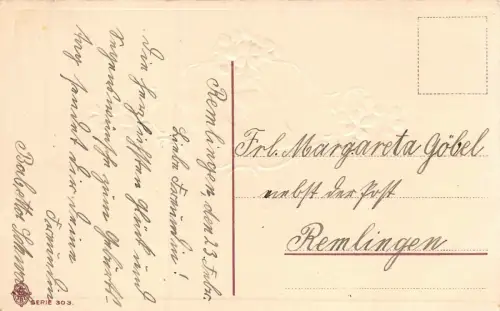 Remlingen, den 23. Febr.
Liebe Freundin!
Die herzlichsten Glück und
Segenswünsche zum Geburts-
tag sendet dir deine
Freundin
Babette
Frl. Margareta Göbel
nebst der Post
Remlingen
SERIE 303.